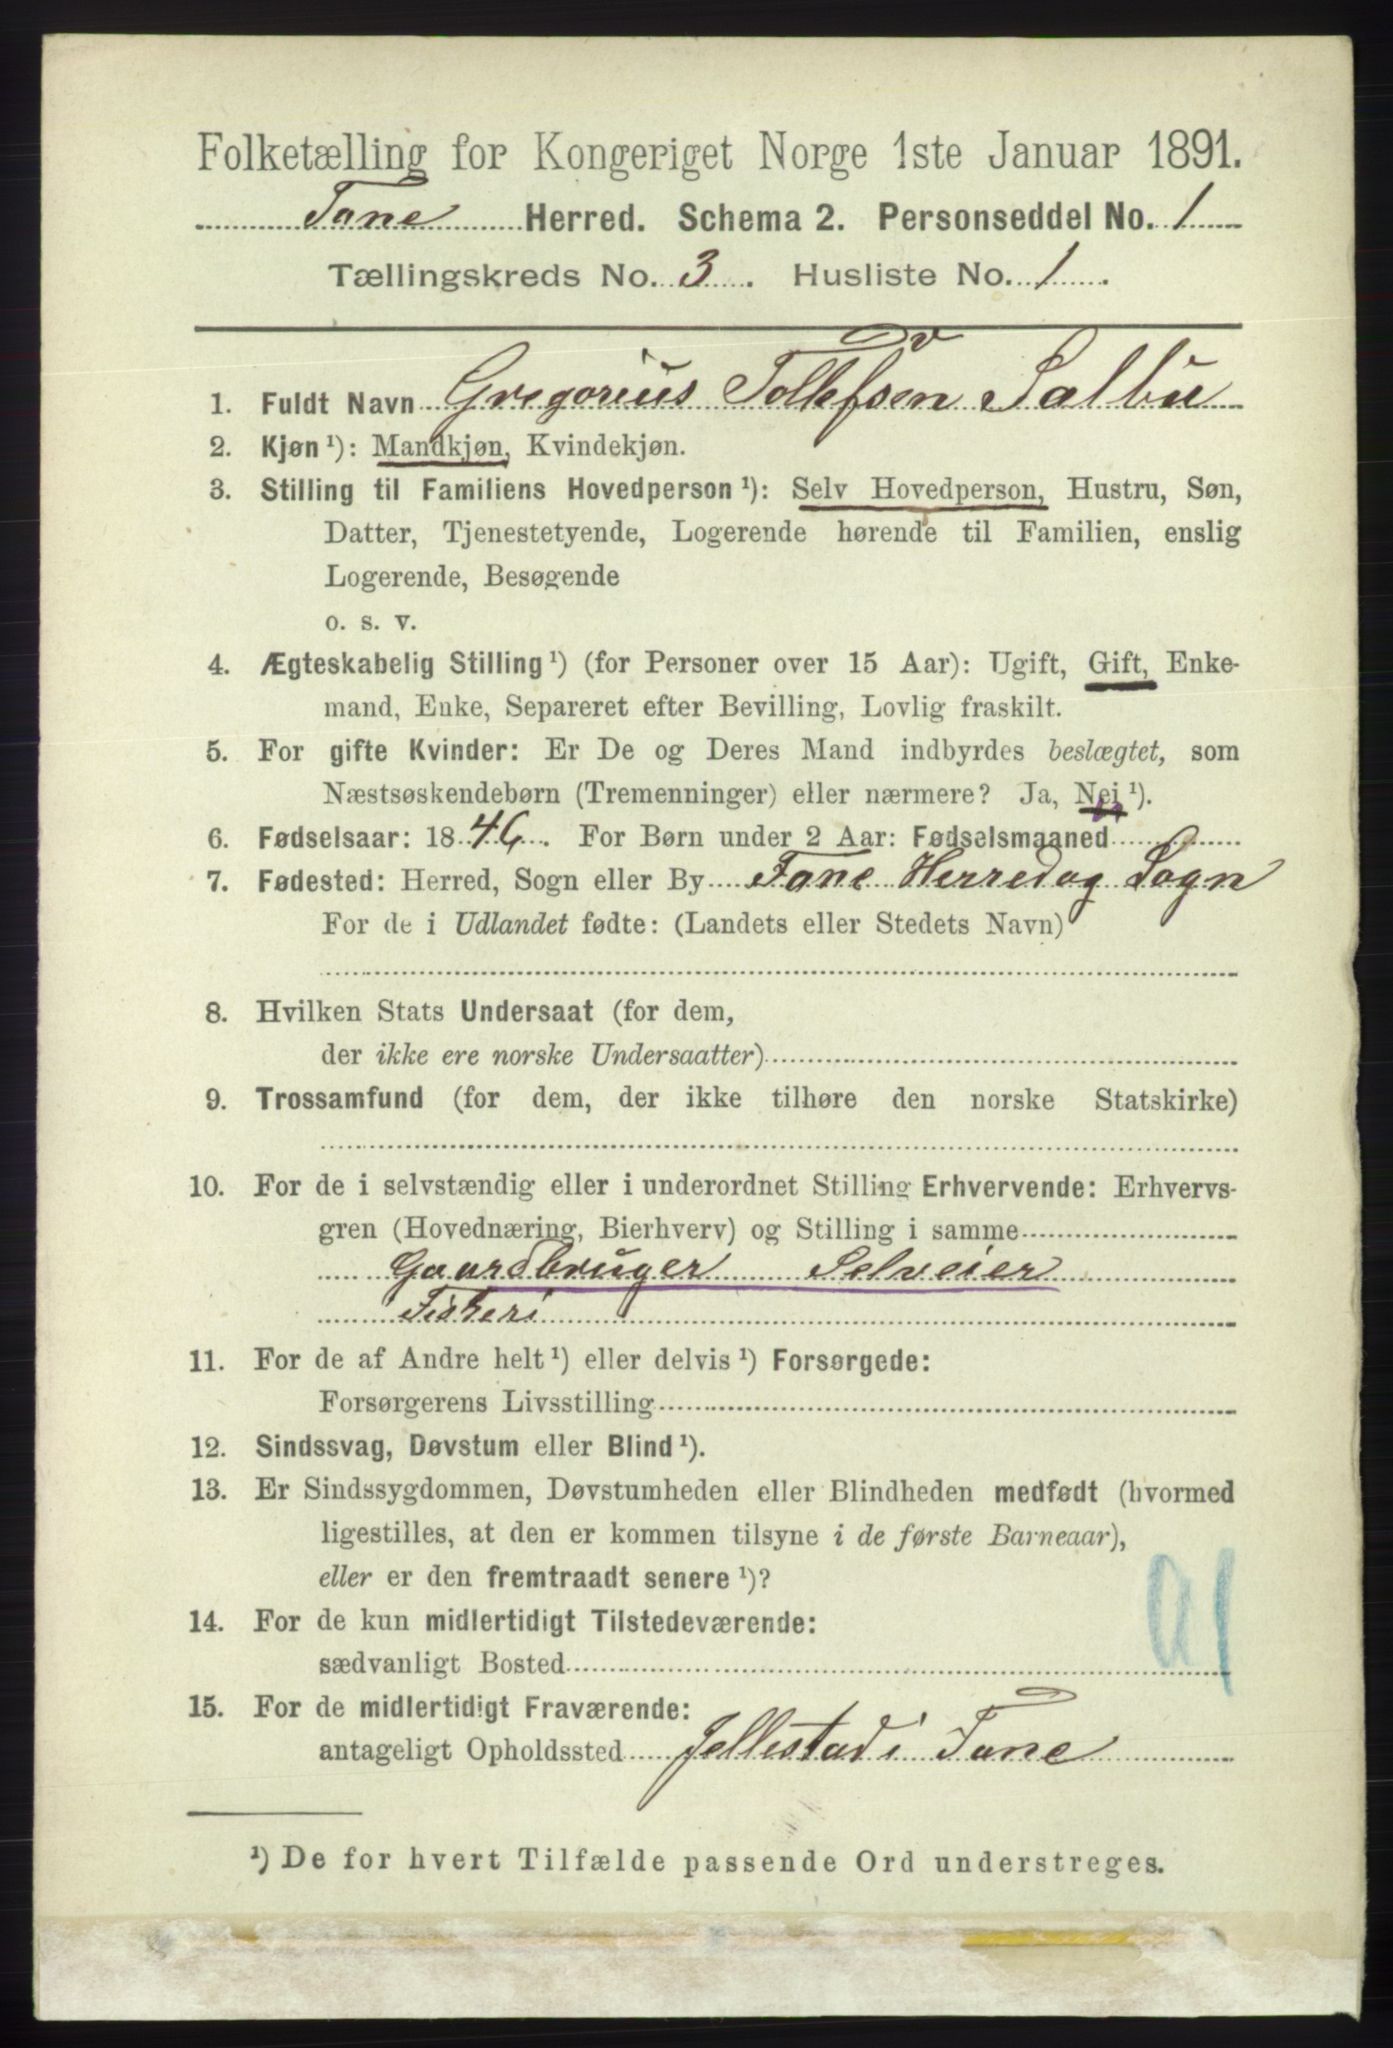 Folketælling for Kongeriget Norge 1ste Januar 1891.
Fane Herred. Schema 2. Personseddel No. 1
Tællingskreds No. 3. Husliste No. 1.
1. Fuldt Navn Gregorius Tollefsen Salbu
2. Kjøn ¹): Mandkjøn, Kvindekjøn.
3. Stilling til Familiens Hovedperson ¹): Selv Hovedperson, Hustru, Søn,
Datter, Tjenestetyende, Logerende hørende til Familien, enslig
Logerende, Besøgende
o. s. v.
4. Ægteskabelig Stilling ¹) (for Personer over 15 Aar): Ugift, Gift, Enke-
mand, Enke, Separeret efter Bevilling, Lovlig fraskilt.
5. For gifte Kvinder: Er De og Deres Mand indbyrdes beslægtet, som
Næstsøskendebørn (Tremenninger) eller nærmere? Ja, Nei ¹).
6. Fødselsaar: 1846. For Børn under 2 Aar: Fødselsmaaned
7. Fødested: Herred, Sogn eller By Fane Herred og Sogn
For de i Udlandet fødte: (Landets eller Stedets Navn)
8. Hvilken Stats Undersaat (for dem,
der ikke ere norske Undersaatter)
9. Trossamfund (for dem, der ikke tilhøre den norske Statskirke)
10. For de i selvstændig eller i underordnet Stilling Erhvervende: Erhvervs-
gren (Hovednæring, Bierhverv) og Stilling i samme
Gaardbruger Selveier
Fiskeri
11. For de af Andre helt ¹) eller delvis ¹) Forsørgede:
Forsørgerens Livsstilling
12. Sindssvag, Døvstum eller Blind ¹).
13. Er Sindssygdommen, Døvstumheden eller Blindheden medfødt (hvormed
ligestilles, at den er kommen tilsyne i de første Barneaar),
eller er den fremtraadt senere ¹)?
14. For de kun midlertidigt Tilstedeværende:
sædvanligt Bosted
15. For de midlertidigt Fraværende:
antageligt Opholdssted Jellestad i Fane
¹) De for hvert Tilfælde passende Ord understreges.